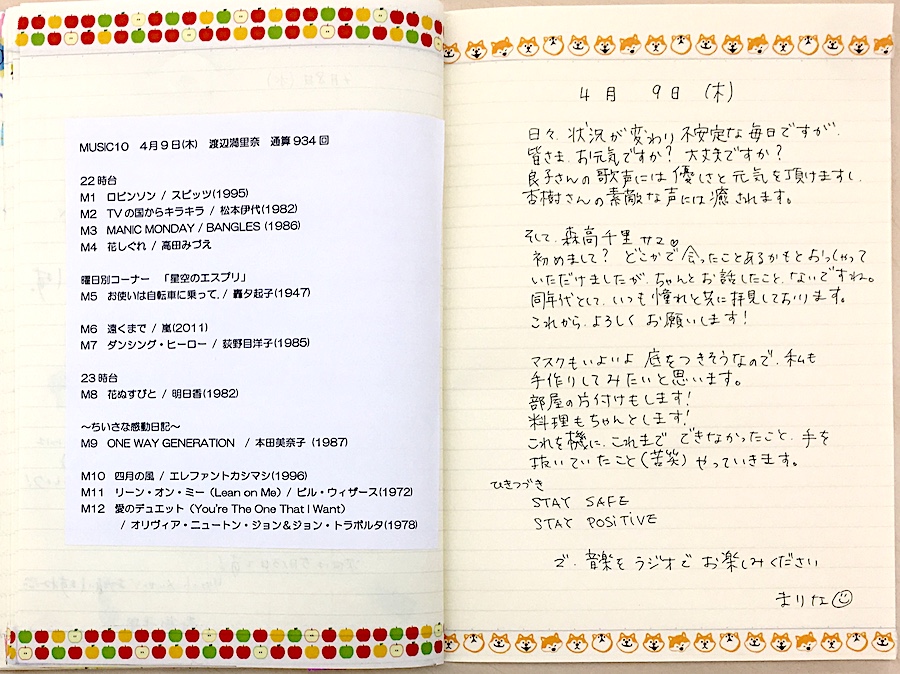 MUSIC10 4月9日(木) 渡辺満里奈 通算934回
22時台
M1 ロビンソン / スピッツ(1995)
M2 TVの国からキラキラ / 松本伊代(1982)
M3 MANIC MONDAY / BANGLES (1986)
M4 花しぐれ / 高田みづえ
曜日別コーナー 「星空のエスプリ」
M5 お使いは自転車に乗って. / 轟夕起子(1947)
M6 遠くまで / 嵐(2011)
M7 ダンシング・ヒーロー / 荻野目洋子(1985)
23時台
M8 花ぬすびと / 明日香(1982)
～ちいさな感動日記～
M9 ONE WAY GENERATION / 本田美奈子 (1987)
M10 四月の風 / エレファントカシマシ(1996)
M11 リーン・オン・ミー (Lean on Me) / ビル・ウィザース(1972)
M12 愛のデュエット (You're The One That I Want)
/ オリヴィア・ニュートン・ジョン＆ジョン・トラボルタ(1978)
4月 9日 (木)
日々、状況が変わり不安定な毎日ですが、
皆さま、お元気ですか? 大丈夫ですか?
良子さんの歌声には優しさと元気を頂けますし、
杏樹さんの素敵な声には癒されます。
そして、森高千里サマ♡
初めまして? どこかで会ったことあるかもとおっしゃって
いただけましたが、ちゃんとお話したこと、ないですね。
同年代として、いつも憧れと共に拝見しております。
これから、よろしくお願いします!
マスクもいよいよ底をつきそうなので、私も
手作りしてみたいと思います。
部屋の片付けもします!
料理もちゃんとします!
これを機に、これまでできなかったこと、手を
抜いていたこと(苦笑)やっていきます。
ひきつづき
STAY SAFE
STAY POSITIVE
で、音楽をラジオでお楽しみください
まりな☺